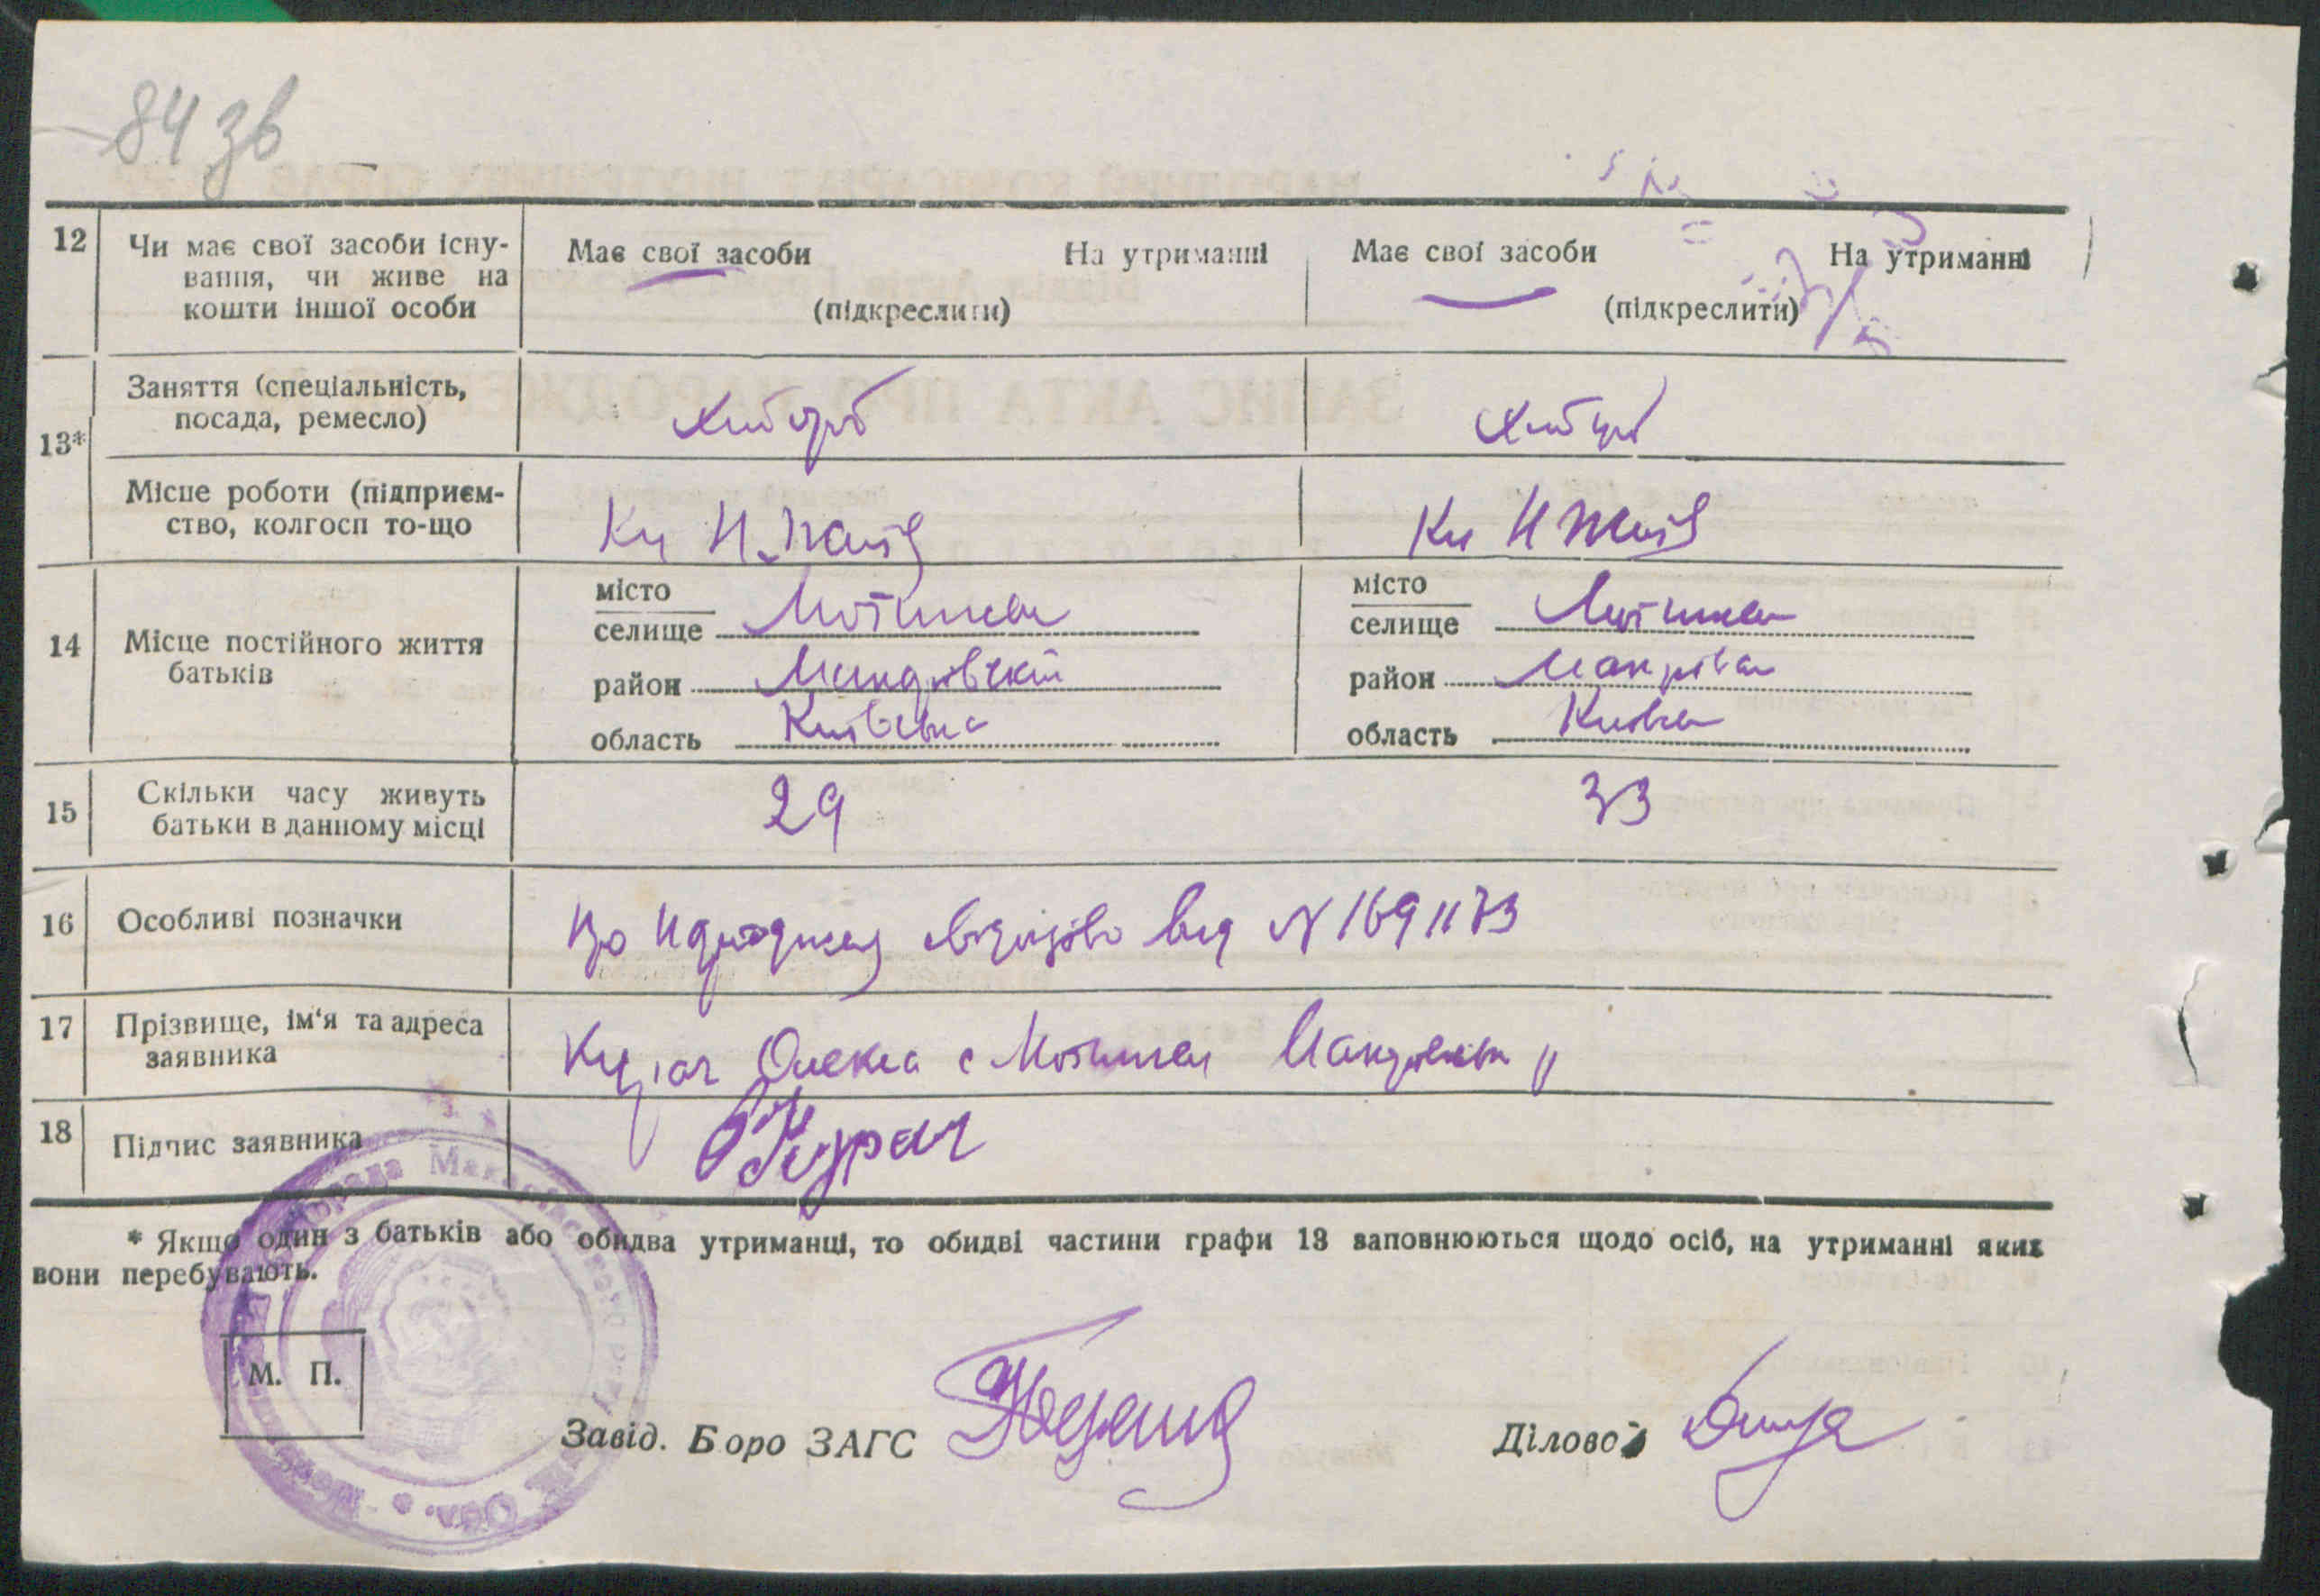 84 зв
12 Чи має свої засоби існу- Має свої засоби На утриманні Має свої засоби На утриманні
вання, чи живе на
кошти іншої особи (підкреслити) (підкреслити)
Заняття (спеціальність,
посада, ремесло) Хлібороб Хлібороб
13*
Місце роботи (підприєм-
ство, колгосп то-що
місто місто
селище Мотижен селище Мотижен
14 Місце постійного життя
батьків
район Макарівський район Макарівськ
область Київська область Київськ
15 Скільки часу живуть 29 33
батьки в данному місці
16 Особливі позначки про народження свідоцтво вид N 1691173
17 Прізвище, ім'я та адреса
заявника Курач Олекса с Мотижен Макарівськ
18 Підпис заявника Курач
* Якщо один з батьків або обидва утриманці, то обидві частини графи 13 заповнюються щодо осіб, на утриманні яких
вони перебувають.
М. П.
Завід. Боро ЗАГС Діловод